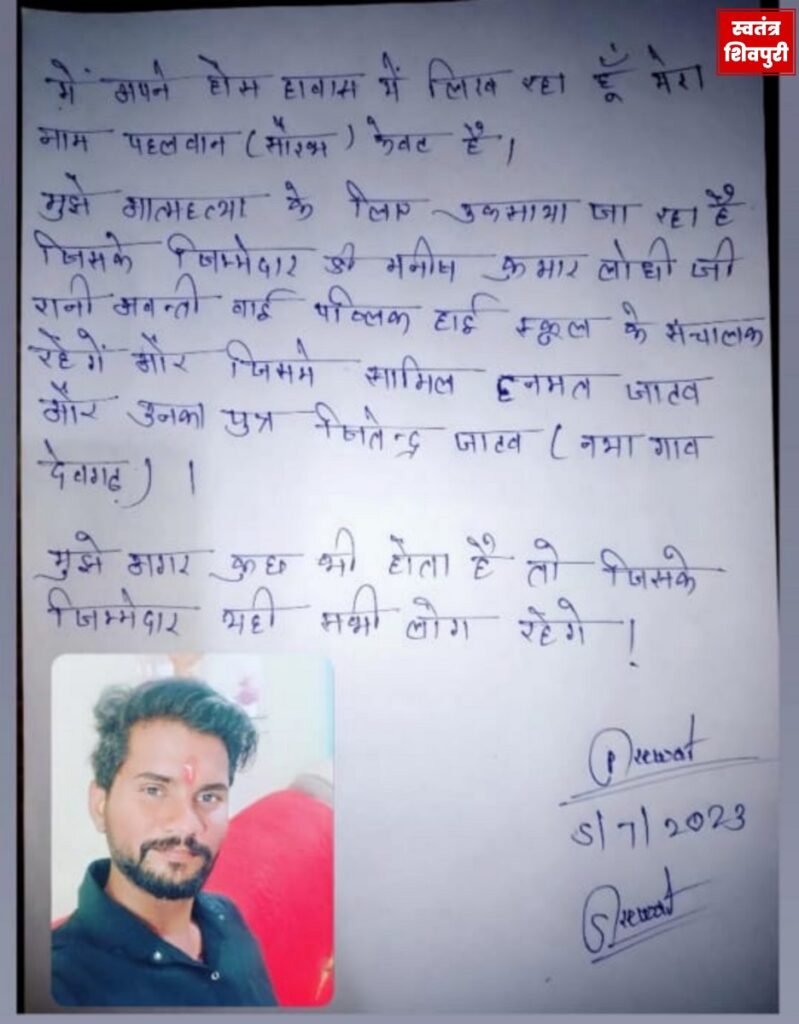 स्वतंत्र
शिवपुरी
में अपने होस हावास में लिख रहा हूँ मेरा
नाम पहलवान (सौरभ) केवट है।
मुझे आत्महत्या के लिए उकसाया जा रहा है
जिसके जिम्मेदार श्री मनीष कुमार लोधी जी
रानी अवन्ती बाई पब्लिक हाई स्कूल के संचालक
रहेगें और जिसमे सामिल हनमत जाटव
और उनका पुत्र जितेन्द्र जाटव (नया गाव
देवगढ़) ।
मुझे अगर कुछ भी होता है तो जिसके
जिम्मेदार यही सभी लोग रहेगे !
5/7/2023